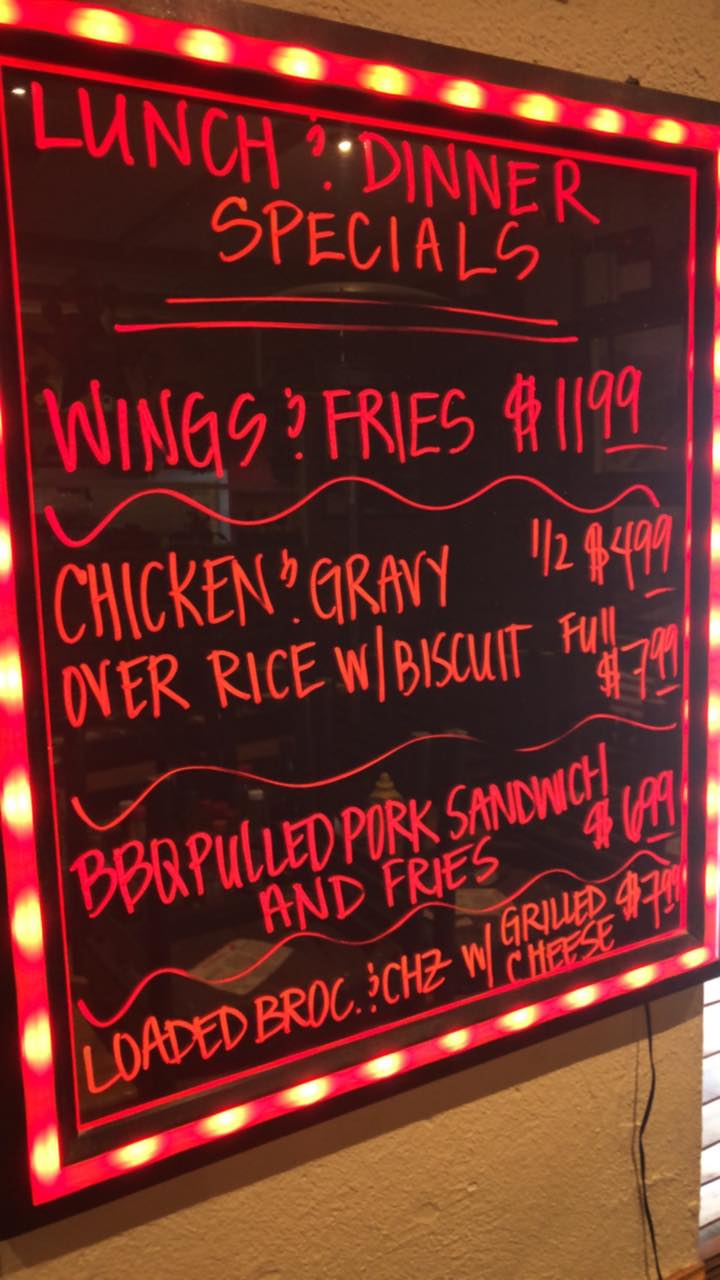 LUNCH & DINNER
SPECIALS
WINGS & FRIES $1199
CHICKEN & GRAVY 1/2 $499
OVER RICE W/BISCUIT Full $799
BBQ PULLED PORK SANDWICH
AND FRIES $699
LOADED BROC. & CHZ W/ GRILLED CHEESE $799